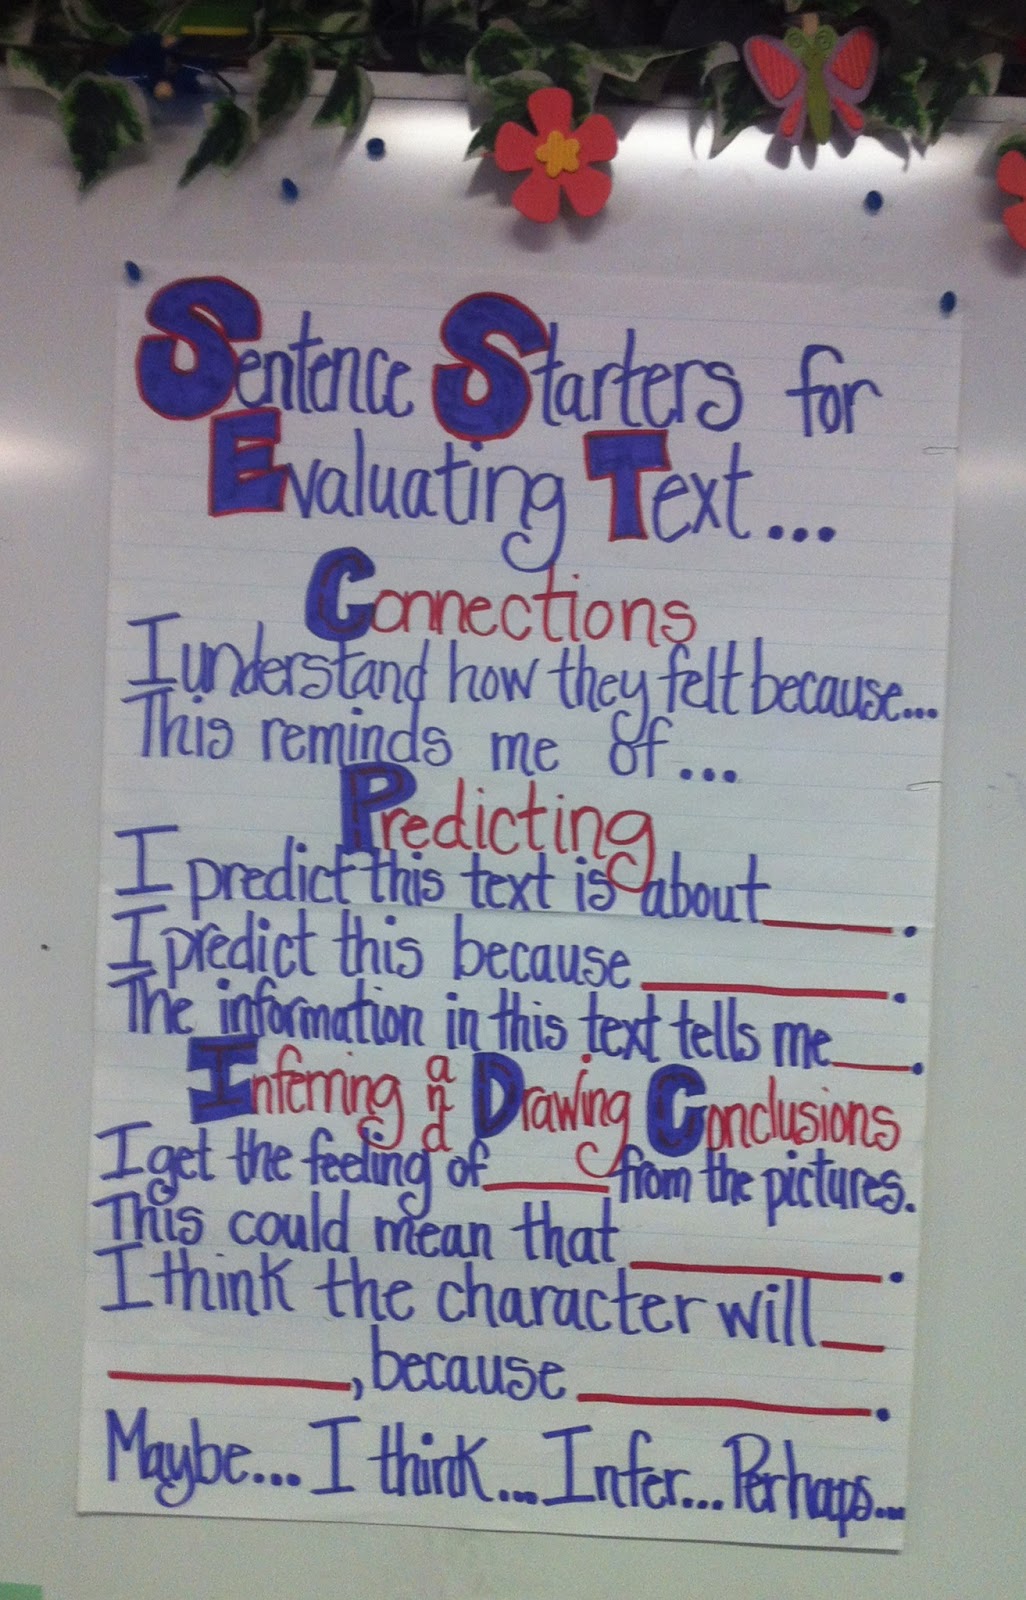 Sentence Starters for
Evaluating Text...
Connections
I understand how they felt because...
This reminds me of...
Predicting
I predict this text is about____.
I predict this because____.
The information in this text tells me____.
Inferring and Drawing Conclusions
I get the feeling of____from the pictures.
This could mean that____.
I think the character will__
____, because____.
Maybe... I think... I infer... Perhaps...